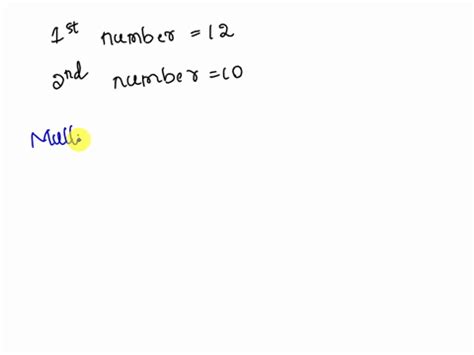 1st number = 12
2nd number = 10
Multi